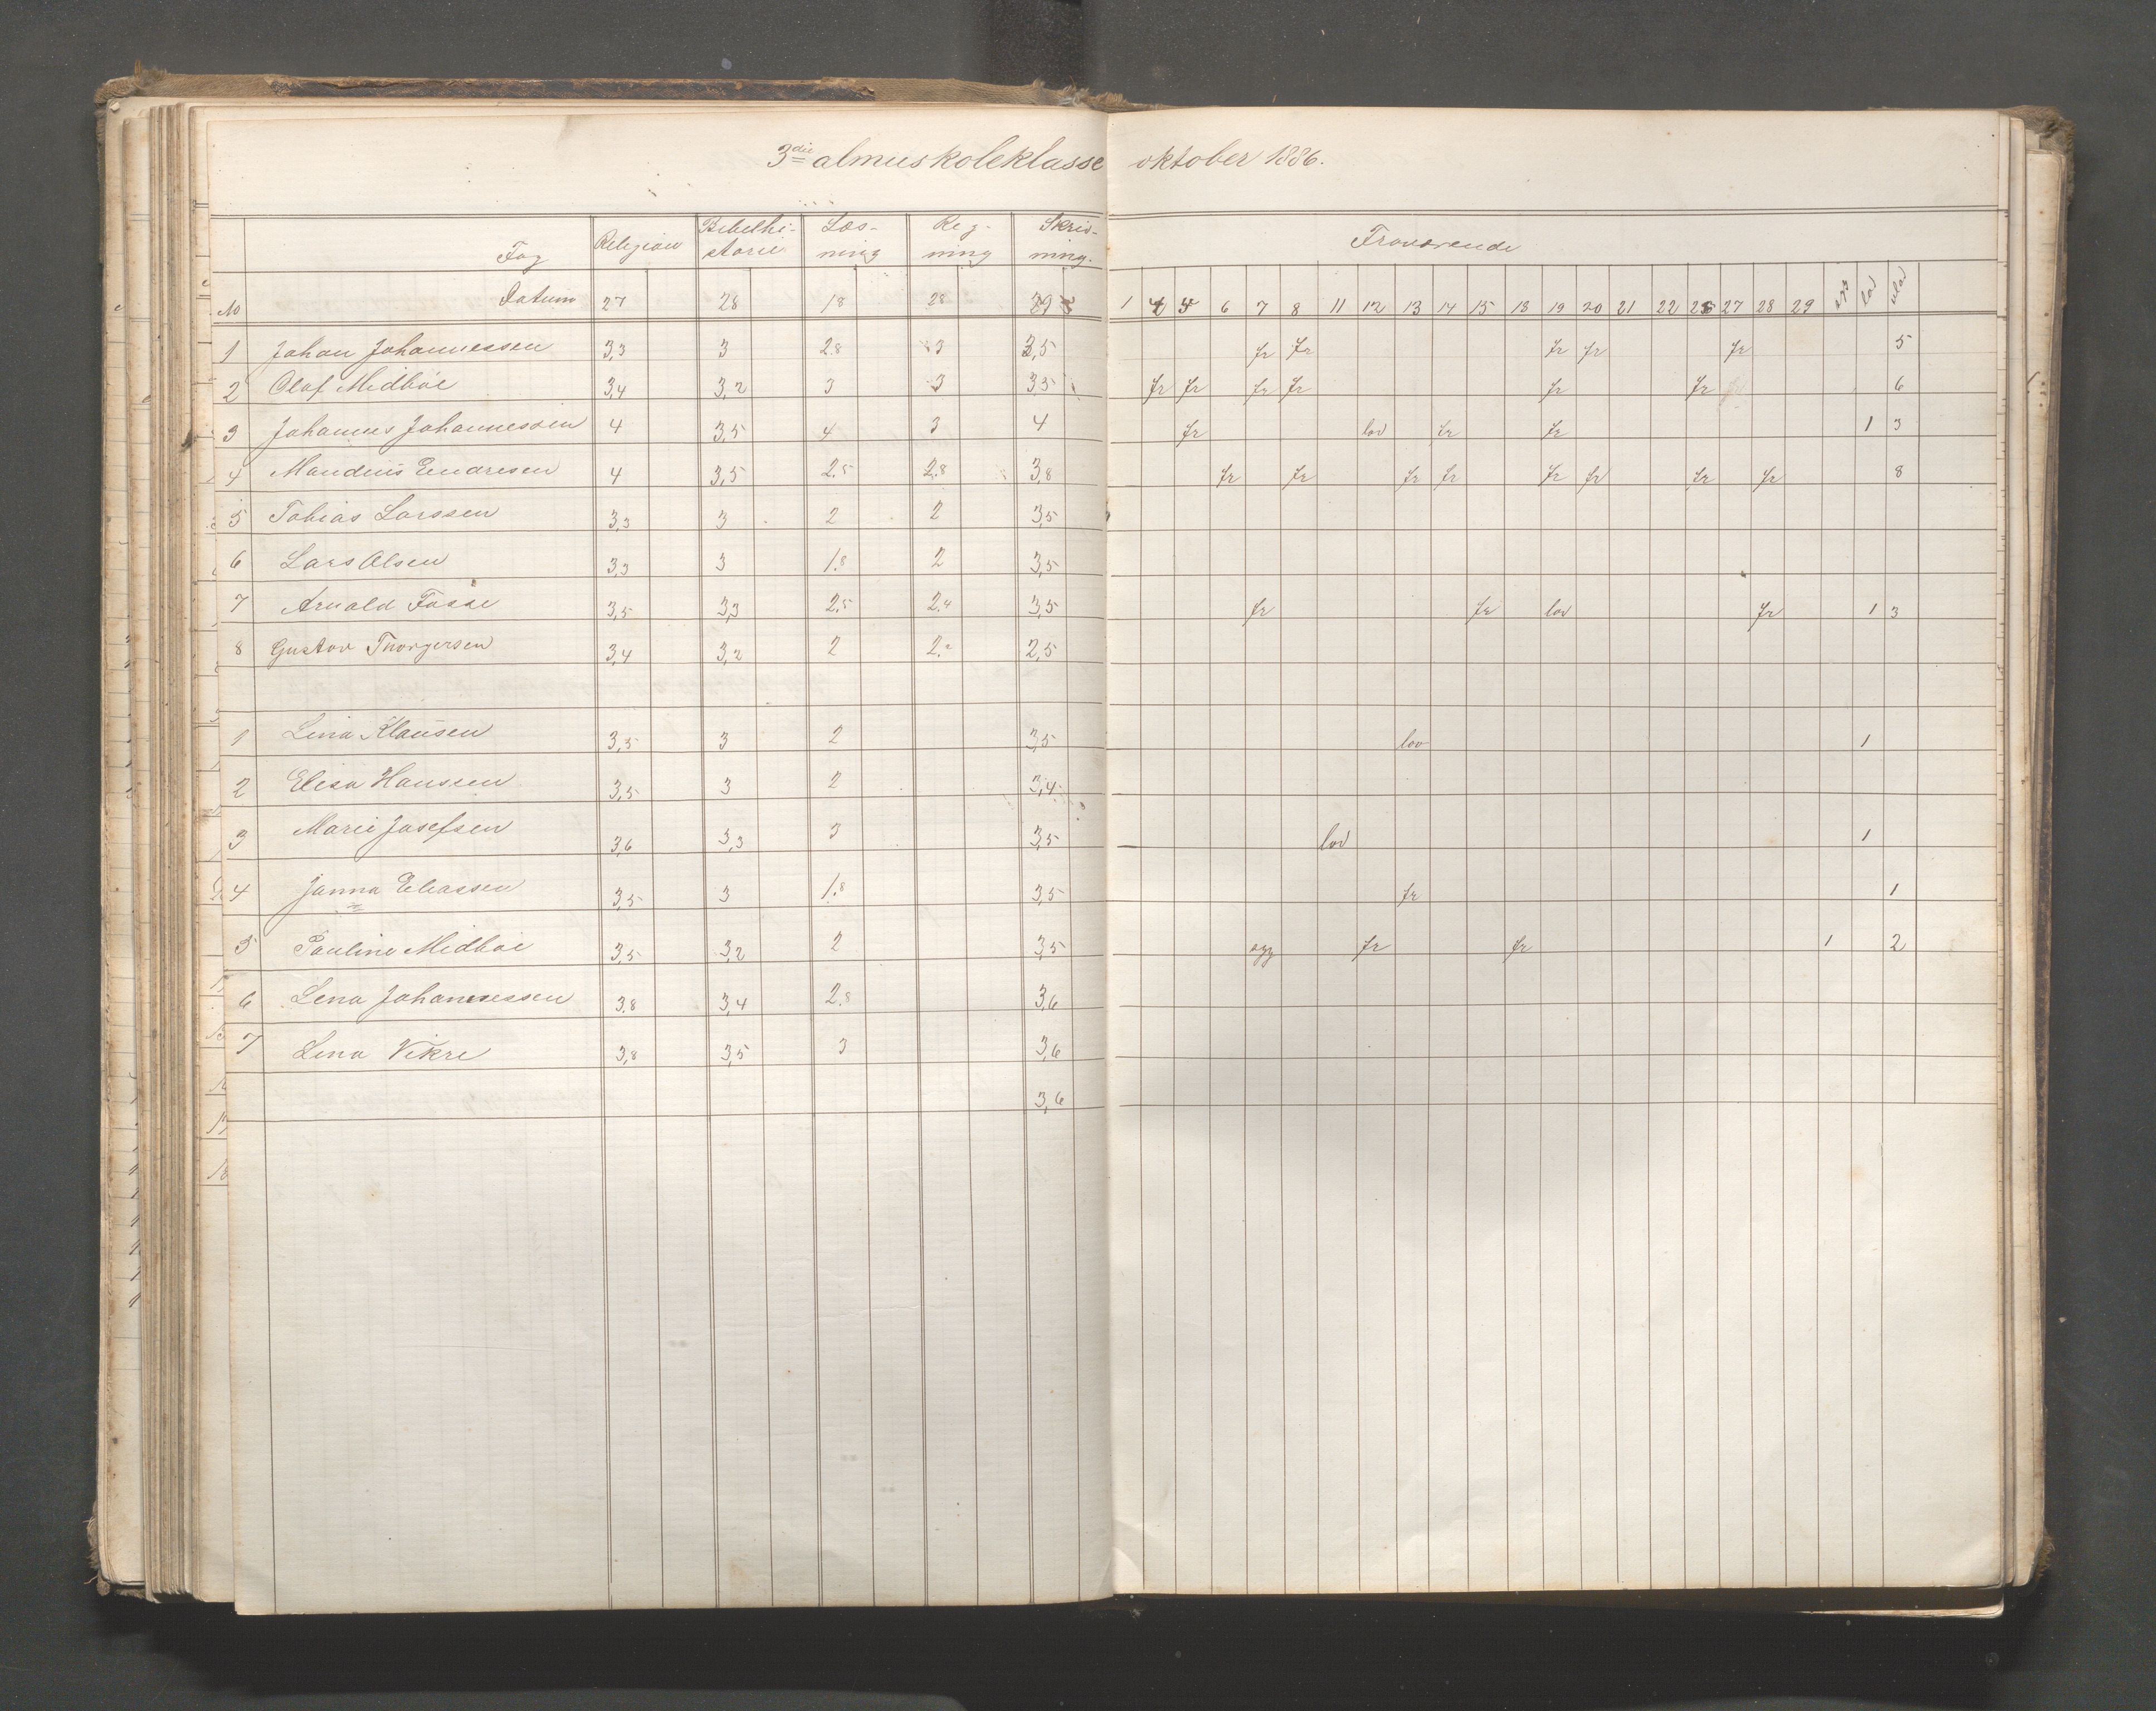 3die almuskoleklasse oktober 1886.
Fag Religion Bibelhi- storie Læs- ning Reg- ning Skriv- ning. Fraværende
No Datum 27 28 18 28 29 1 4 5 6 7 8 11 12 13 14 15 18 19 20 21 22 26 27 28 29 syg lov ulov
1 Johan Johannessen 3,3 3 2.8 3 3,5 fr fr fr fr fr 5
2 Olaf Midbøe 3,4 3,2 3 3 3,5 fr fr fr fr fr fr 6
3 Johannes Johannessen 4 3,5 4 3 4 fr lov fr fr 1 3
4 Maudius Endresen 4 3,5 2.5 2.8 3,8 fr fr fr fr fr fr fr fr 8
5 Tobias Larssen 3,3 3 2 2 3,5
6 Lars Olsen 3,3 3 1.8 2 3,5
7 Arnold Fosse 3,5 3,3 2.5 2.4 3,5 fr fr lov fr 1 3
8 Gustav Thorgersen 3,4 3,2 2 2.2 2,5
1 Lina Klausen 3,5 3 2 3,5 lov 1
2 Elisa Hanssen 3,5 3 2 3,4
3 Marie Josefsen 3,6 3,3 3 3,5 lov 1
4 Janna Eliassen 3,5 3 1.8 3,5 fr 1
5 Pauline Midbøe 3,5 3,2 2 3,5 syg fr fr 1 2
6 Lena Johannessen 3.8 3,4 2.8 3,6
7 Lena Vikre 3,8 3,5 3 3,6
3,6